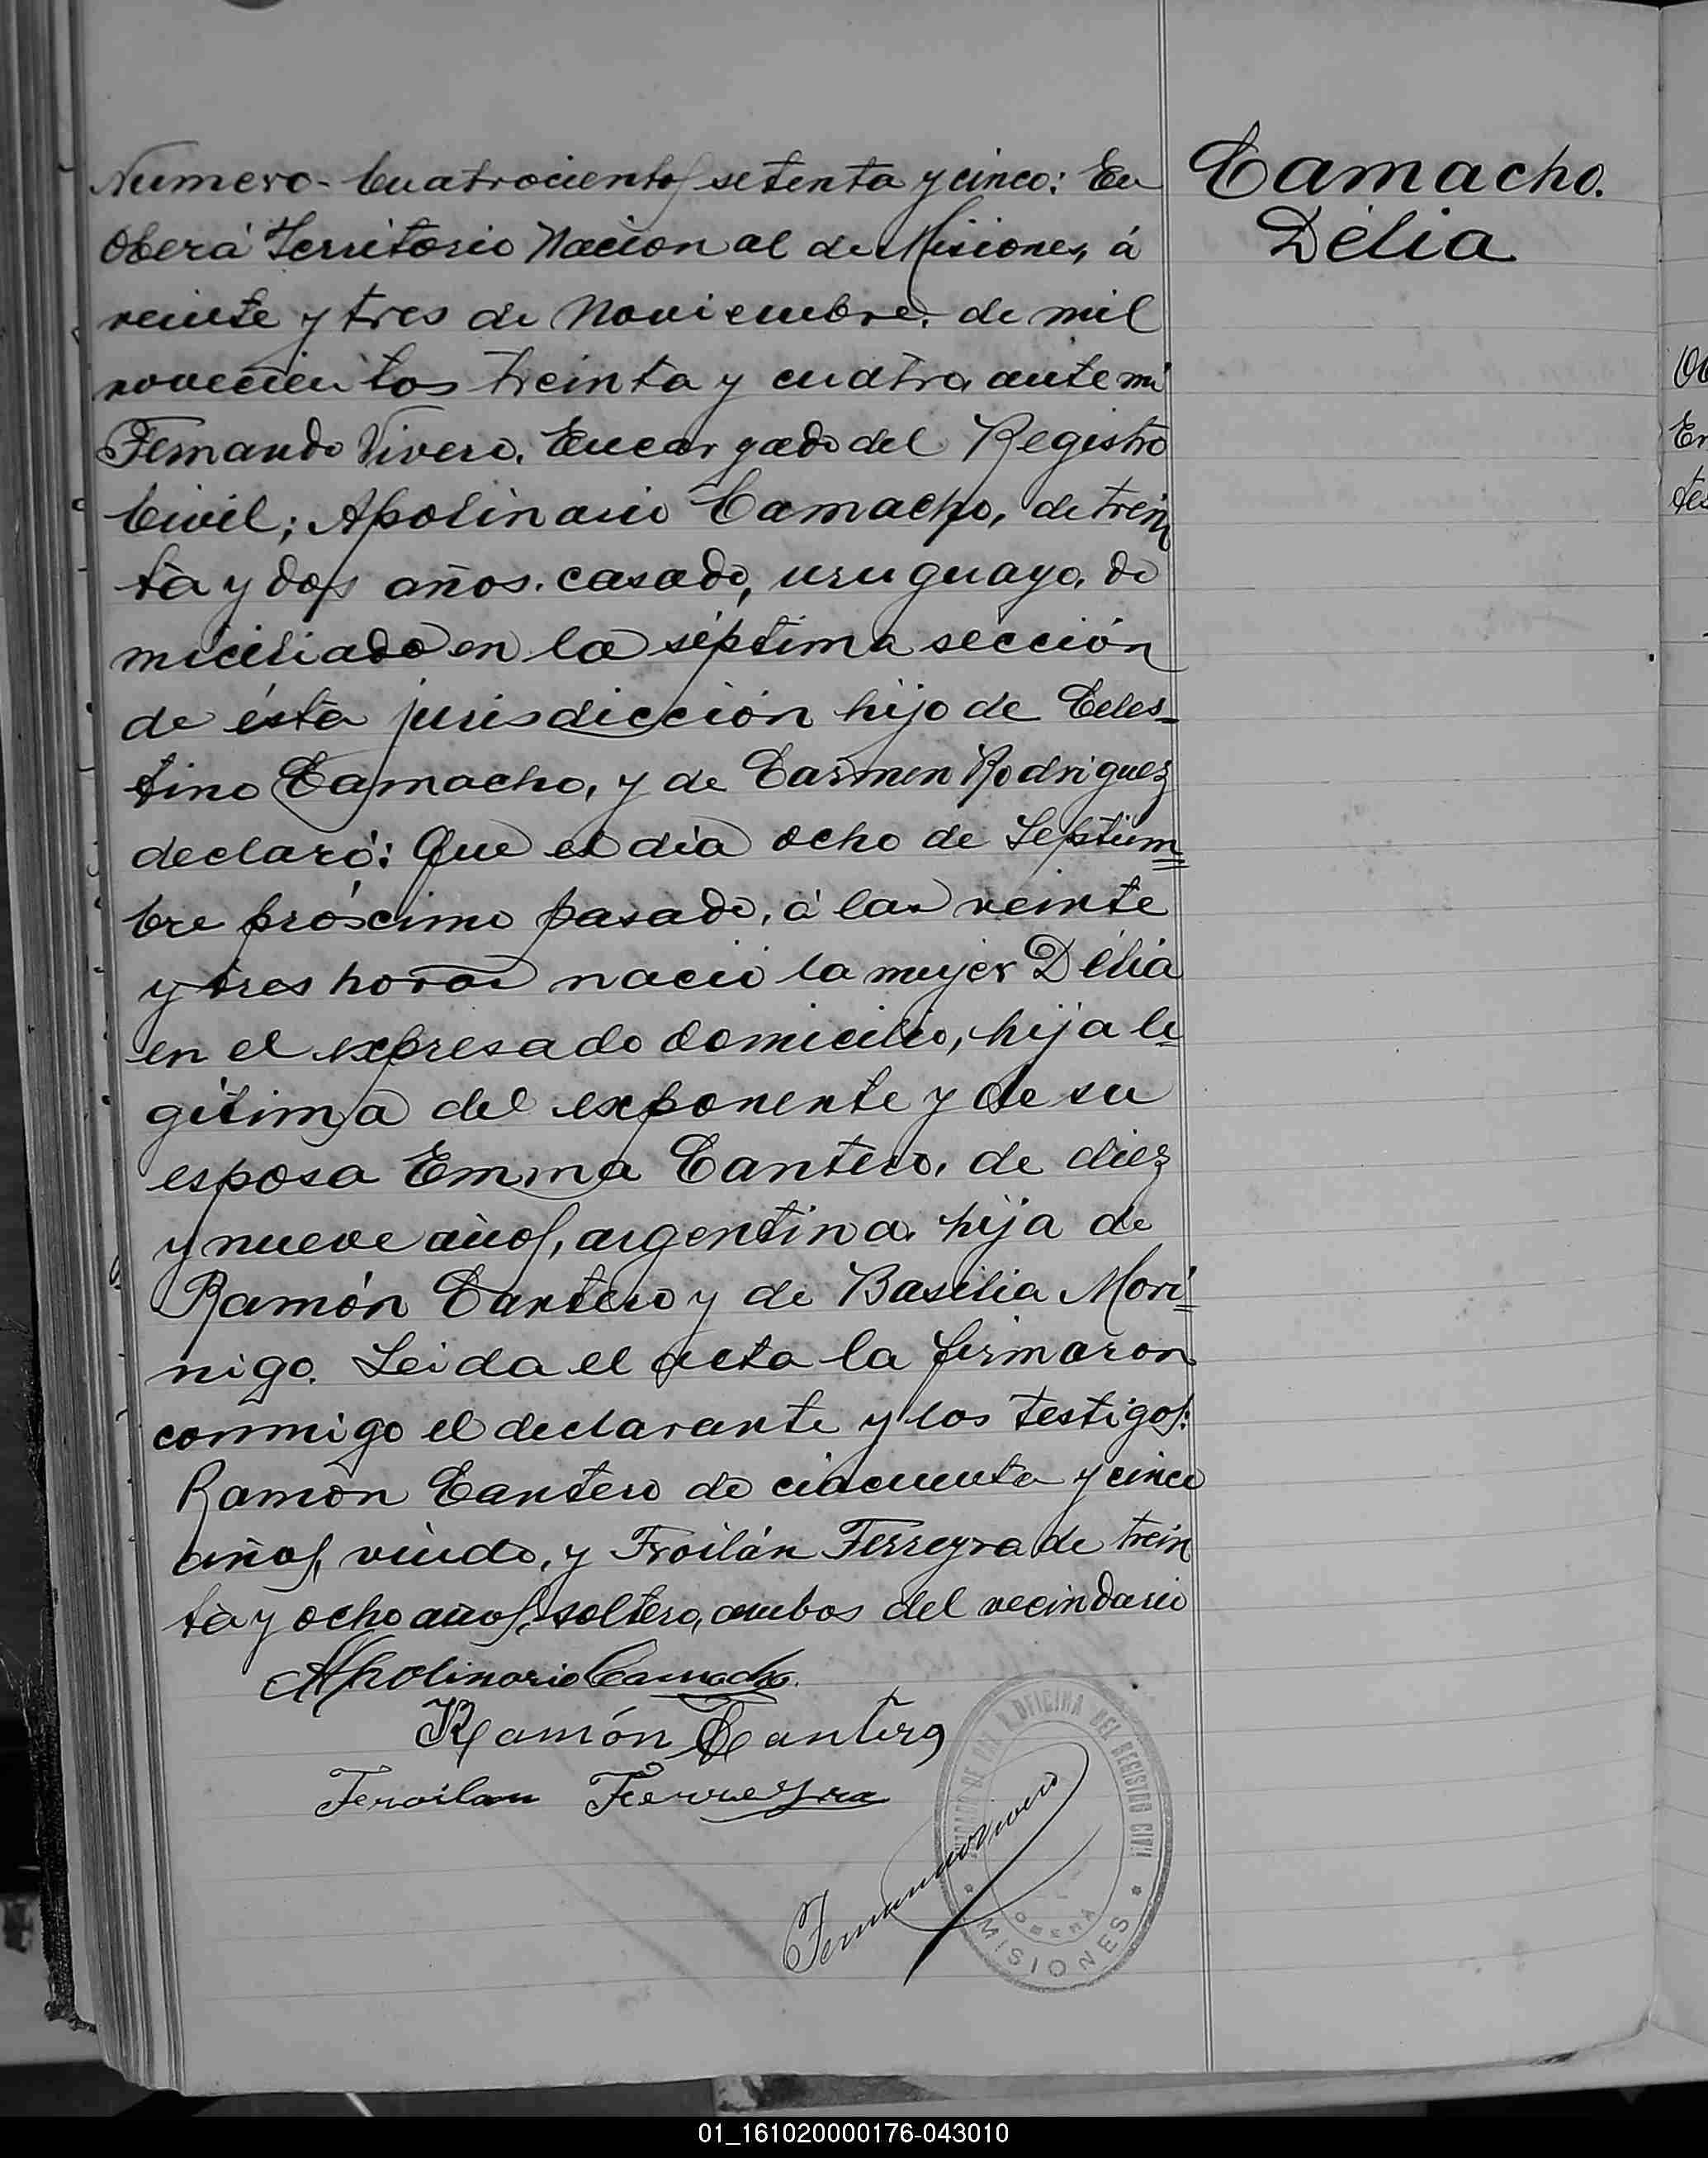 Numero - Cuatrocientos setenta y cinco: En
Oberá Territorio Nacional de Misiones, á
veinte y tres de Noviembre. de mil
novecientos treinta y cuatro, ante mi
Fernando Vivero, Encargado del Registro
Civil; Apolinario Camacho, de trein
ta y dos años. casado, uruguayo, do
miciliado en la séptima sección
de ésta jurisdicción hijo de Celes-
tino Camacho, y de Carmen Rodriguez
declaró: Que el día ocho de Septiem=
bre próscimo pasado, á las veinte
y tres horas nació la mujer Délia
en el expresado domicilio, hija le=
gitima del exponente y de su
esposa Emma Cantero, de diez
y nueve años, argentina. hija de
Ramón Cantero y de Basilia Morí=
nigo. Leida el acta la firmaron
conmigo el declarante y los testigos:
Ramón Cantero de cincuenta y cinco
años, viudo, y Froilán Ferreyra de trein
ta y ocho años, soltero, ambos del vecindario
Apolinario Camacho.
Ramón Cantero
Feroilan Ferreyra
Fernando Vivero
JUZGADO DE PAZ Y OFICINA DEL REGISTRO CIVIL
OBERÁ
* MISIONES *
Camacho.
Délia
Ob
En
tes
01_161020000176-043010